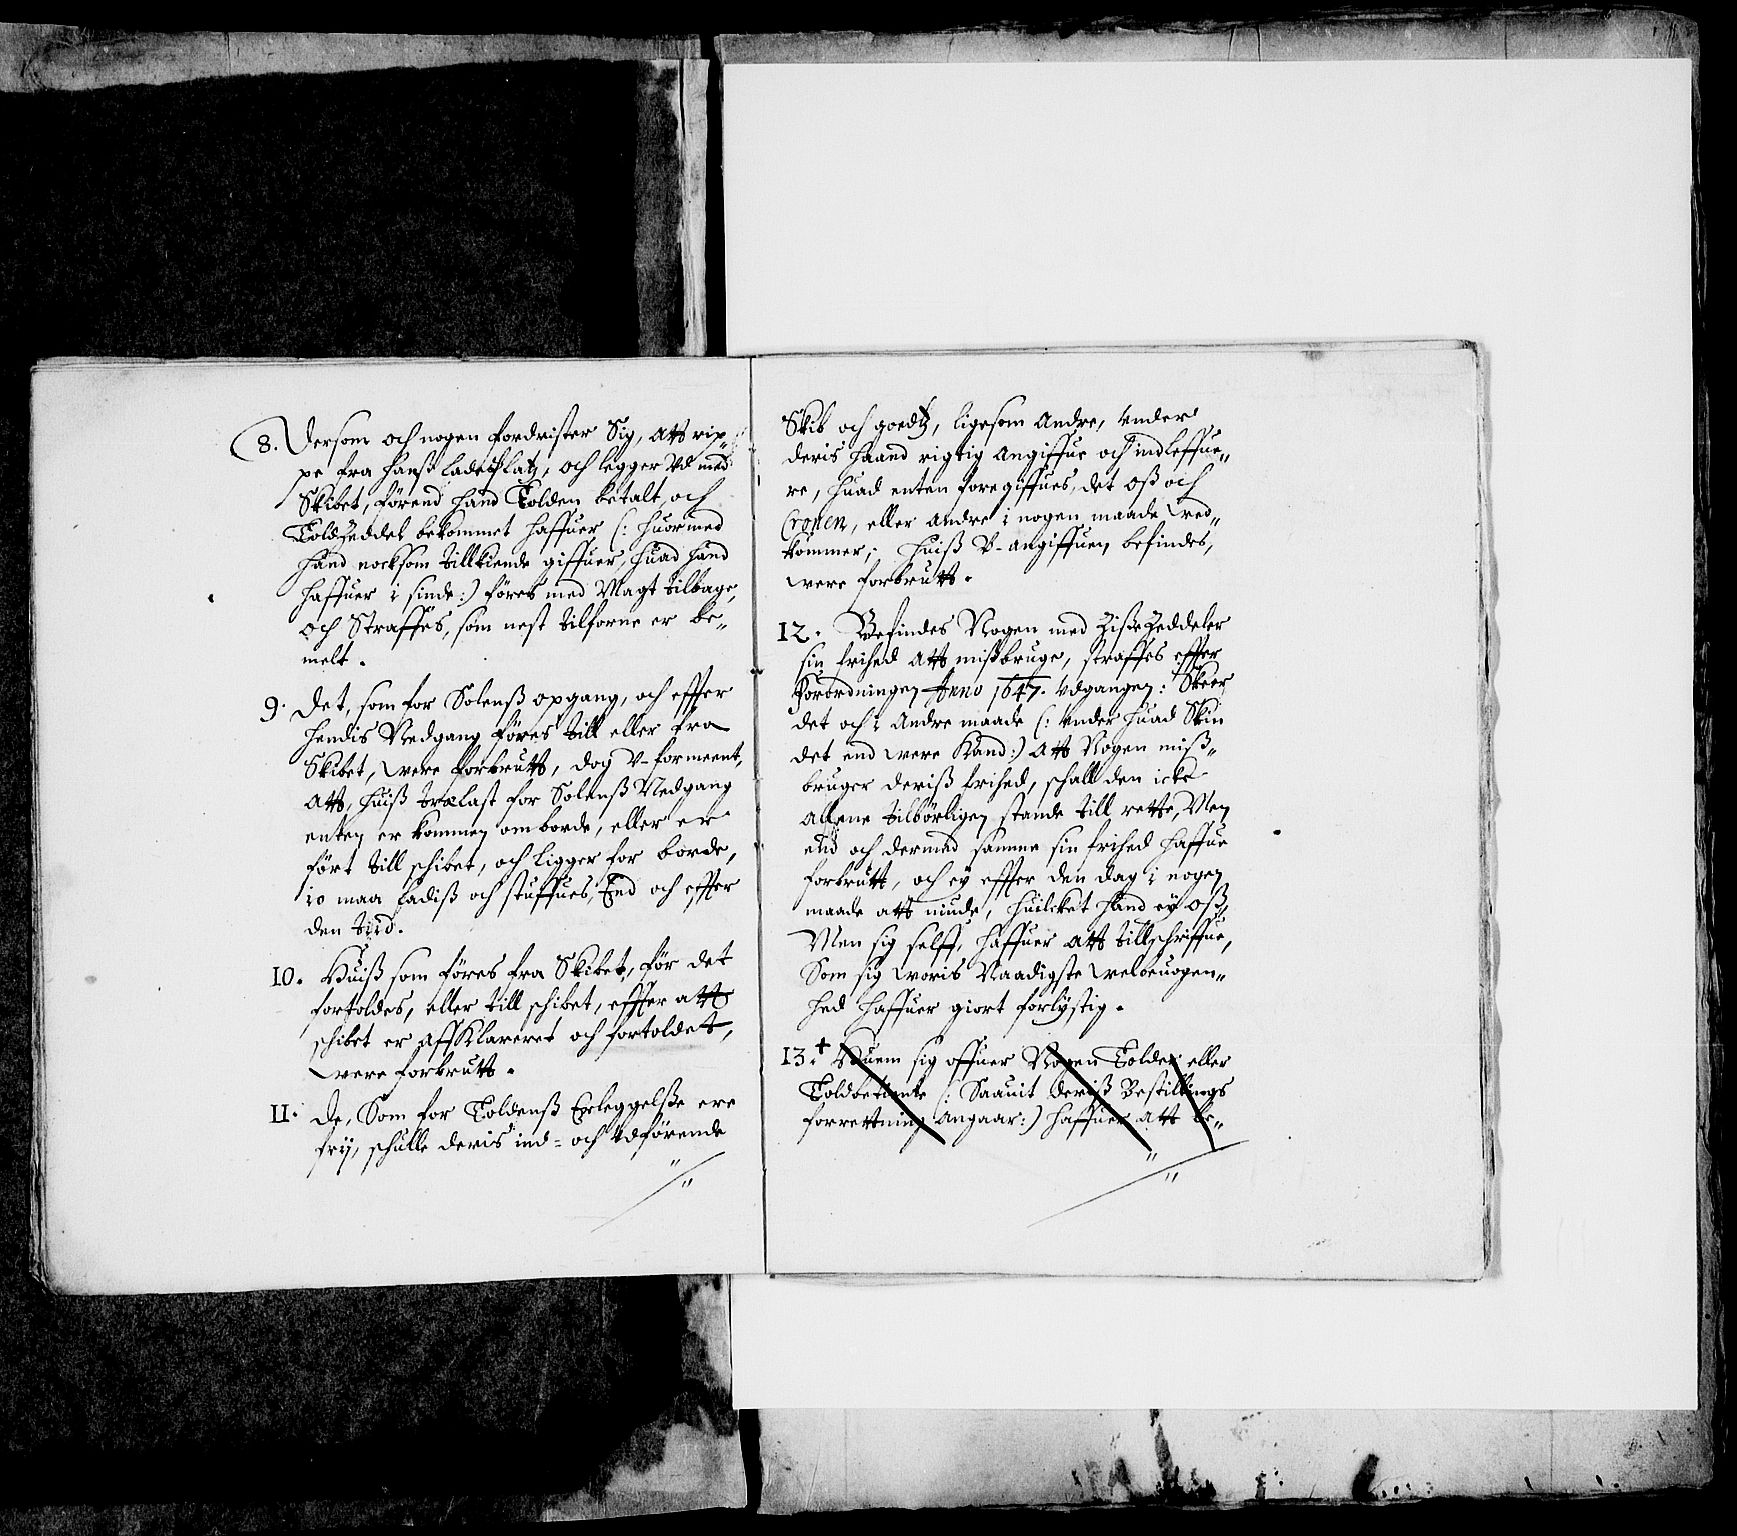 8. Dersom och nogen fordrister Sig, att rip-
pe fra hanß ladeplatz, och legger vd med
Skibet, förend hand Tolden betalt, och
Toldzeddel bekommet haffuer (: huormed
hand nocksom tillkiende giffuer, huad hand
haffuer i sinde:) föres med Magt tilbage,
och Straffes, som nest tilforne er be-
melt.
9. Det, som for Solenß opgang, och effter
hendis Nedgang föres till eller fra
Skibet, were forbrutt, dog V-formeent,
att, huiß trælast for Solenß Nedgang
enten er kommen omborde, eller er
fört till schibet, och ligger for borde,
io maa ladiß och stuffues, End och effter
den tiid.
10. Huiß som föres fra Skibet, för det
fortoldes, eller till schibet, effter att
schibet er affklareret och fortoldet,
were forbrutt.
11. De, Som for Toldenß Erleggelße ere
frij, schulle deris ind- och vdförende
Skib och goedtz, ligesom Andre, vnder
deris haand rigtig Angiffue och indleffue-
re, huad enten foregiffues, det oß och
Cronen, eller andre i nogen maade ved-
kommer; huiß V-angiffuen befindes,
were forbrutt.
12. Befindes Nogen med Zißezeddeler
sin frihed att mißbruge, straffes effter
Forordningen Anno 1647. vdgangen: Skeer
det och i Andre maade (: vnder huad Skin
det end were kand:) att Nogen miß-
bruger deriß frihed, schall den icke
Allene tilbörligen stande till rette, Men
end och dermed samme sin frihed haffue
forbrutt, och ey effter den dag i nogen
maade att niude, huilcket hand ey oß,
Men sig selff, haffuer att tillschriffue,
Som sig woris Naadigste welbeuogen-
hed haffuer giort forlystig.
13. + Huem sig offuer Nogen Tolder eller
Toldbetiente (: Saauit deriß Bestillings
forretning Angaar:) haffuer att be-